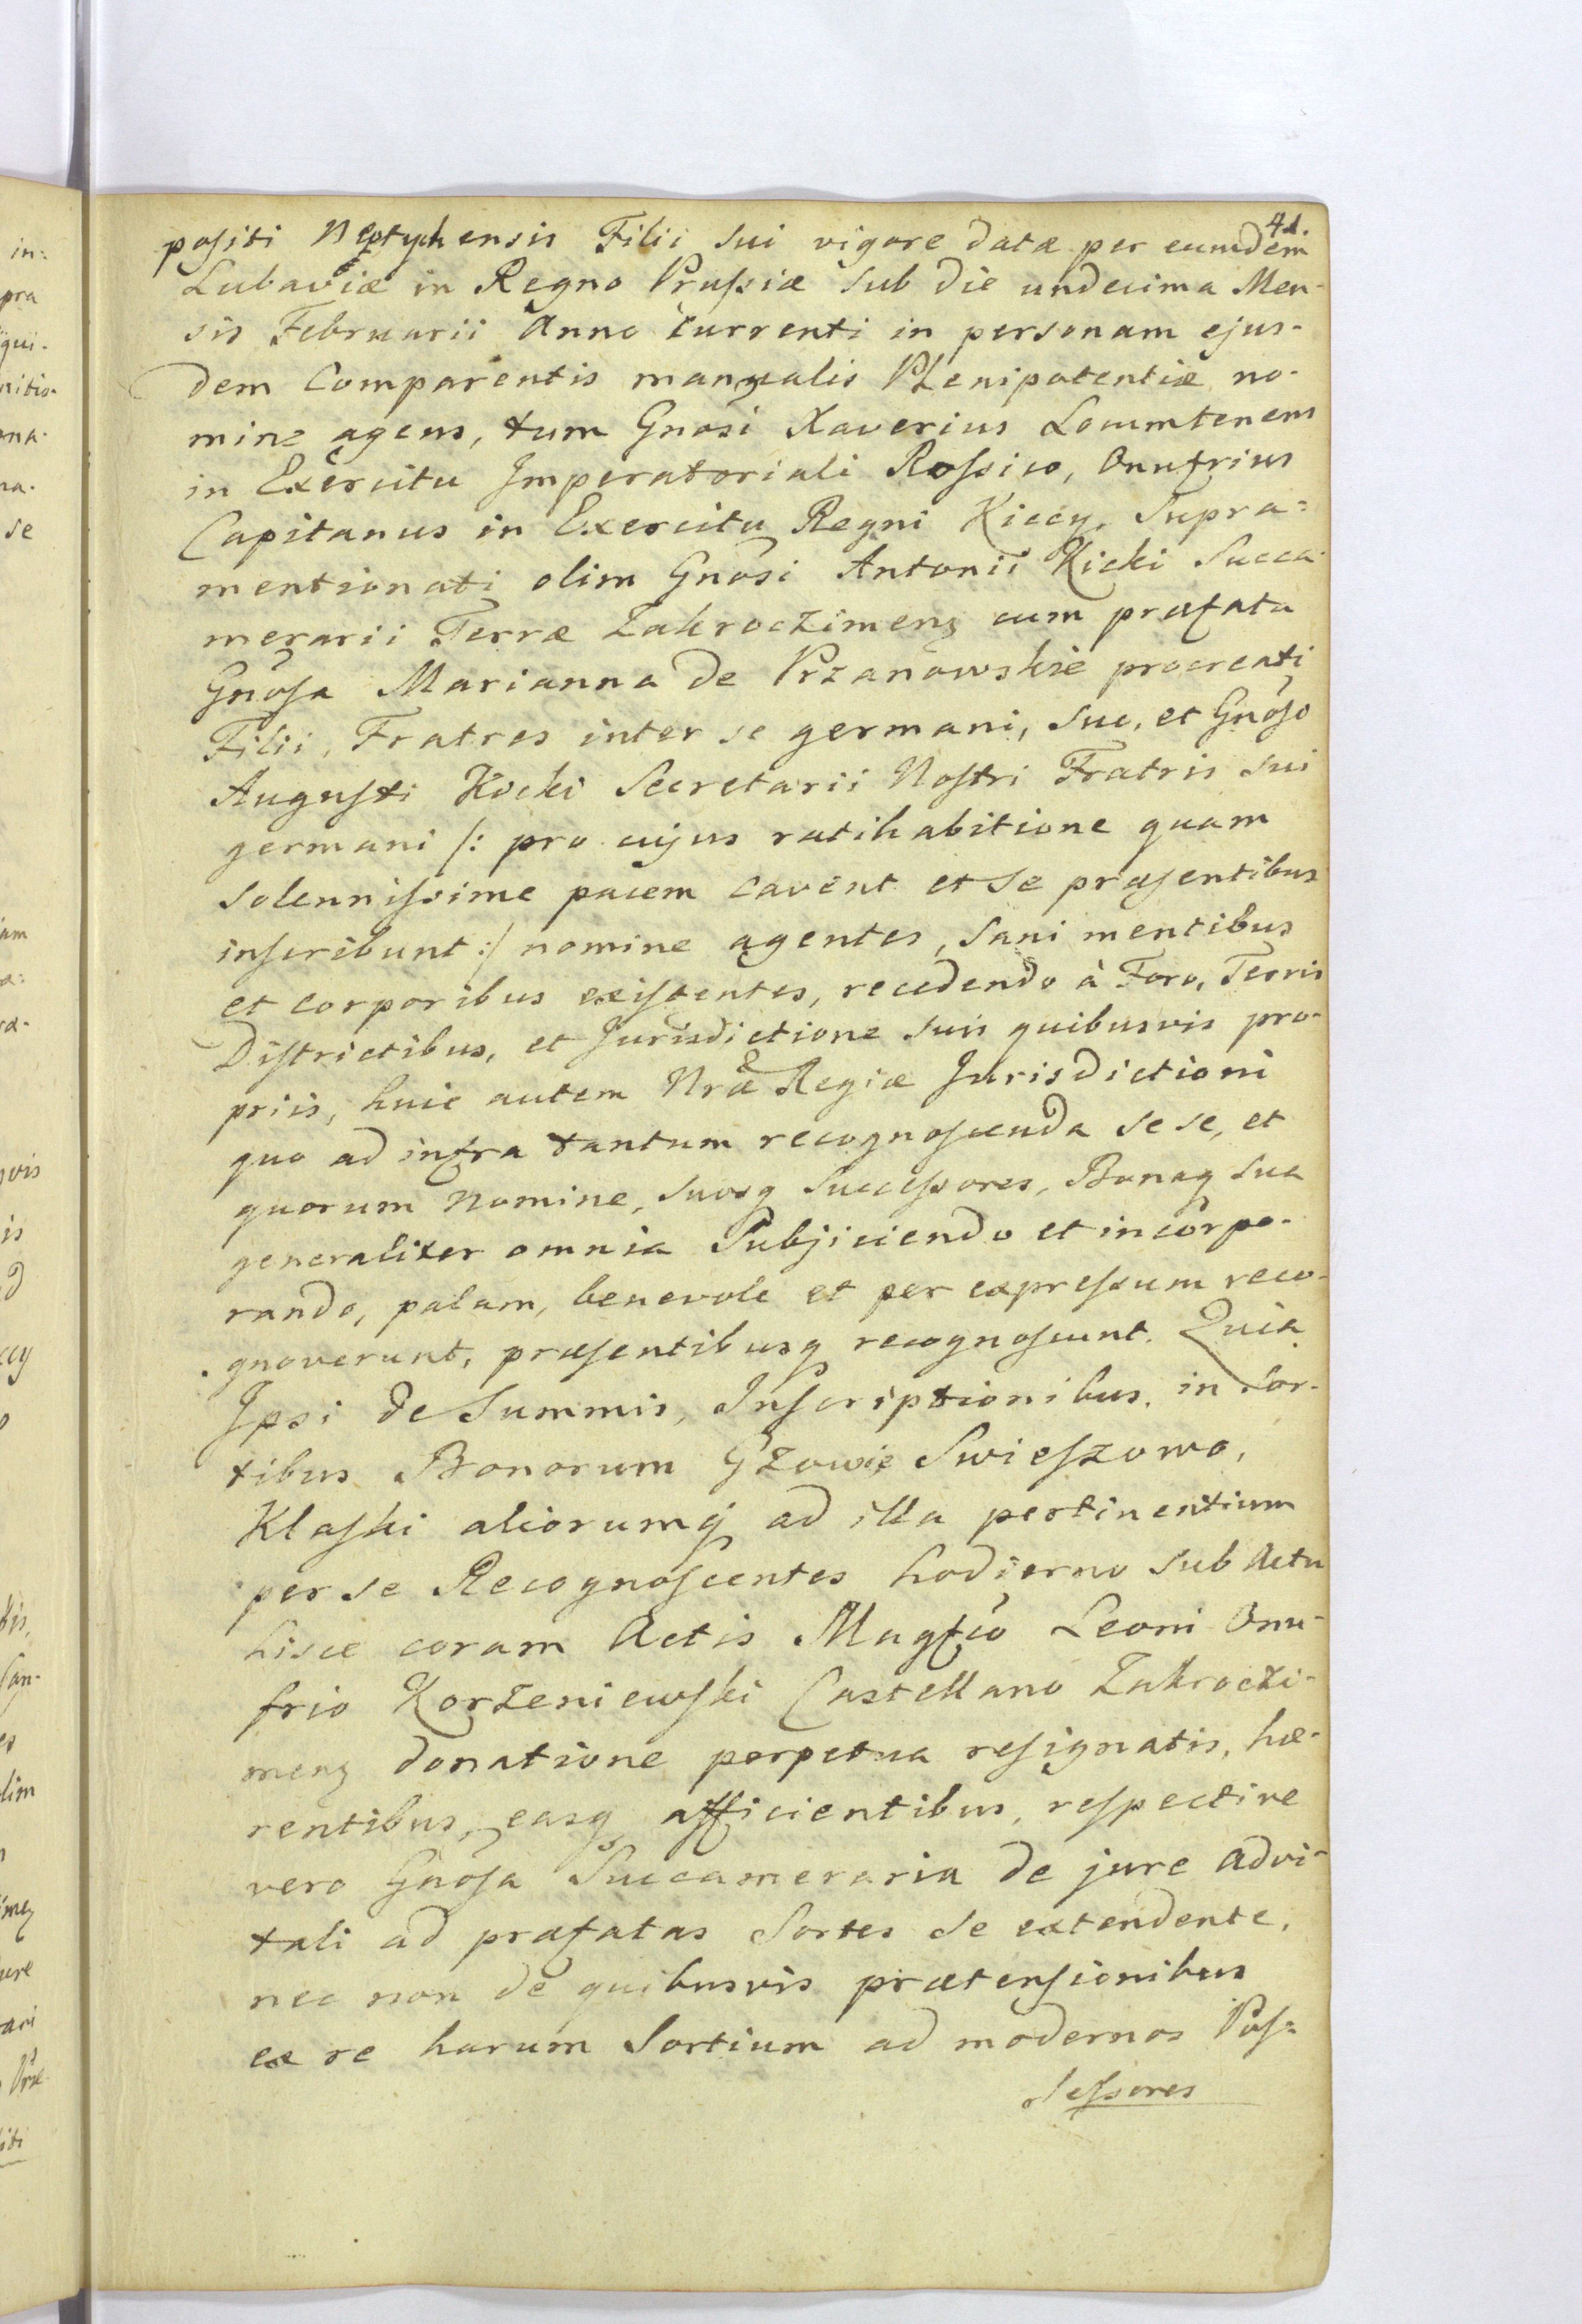 41.
positi Neptychensis Filii sui vigore datæ per eumdem
Lubaviæ in Regno Prussiæ sub die undecima Men-
sis Februarii Anno Currenti in personam ejus-
dem Comparentis manualis Plenipotentiæ no-
mine agens, tum Gnosi Xaverius Locumtenens
in Exercitu Imperatoriali Rossico, Onufrius
Capitanus in Exercitu Regni Kiccy, Supra-
mentionati olim Gnosi Antonii Kicki Succa-
merarii Terræ Zakroczimens cum præfata
Gnosa Marianna de Przanowskie procreati
Filii, Fratres inter se germani, suo, et Gnoso
Augusti Kicki Secretarii Nostri Fratris sui
germani /: pro cujus ratihabitione quam
solennissime pacem cavent et se præsentibus
inscribunt :/ nomine agentes, sani mentibus
et corporibus existentes, recedendo à Foro, Terris
Districtibus, et Jurisdictione suis quibusvis pro-
priis, huic autem Nræ Regiæ Jurisdictioni
quo ad infra tantum recognoscenda se se, et
quorum nomine, suosq Successores, Bonaq sua
generaliter omnia Subjiciendo et incorpo-
rando, palam, benevole et per expressum reco-
gnoverunt, præsentibusq recognoscunt. Quia
Ipsi de Summis, Inscriptionibus, in Sor-
tibus Bonorum Gzowie Swieszowo,
Klaski aliorumq ad illa pertinentium
per se Recognoscentes hodierno sub Actu
hisce coram Actis Magfco Leoni Onu-
frio Korzeniewski Castellano Zakroczi-
mens donatione perpetua resignatis, hæ-
rentibus, easq afficientibus, respective
vero Gnosa Succameraria de jure advi-
tali ad præfatas Sortes se extendente,
nec non de quibusvis prætensionibus
ex re harum Sortium ad modernos Pos-
sessores